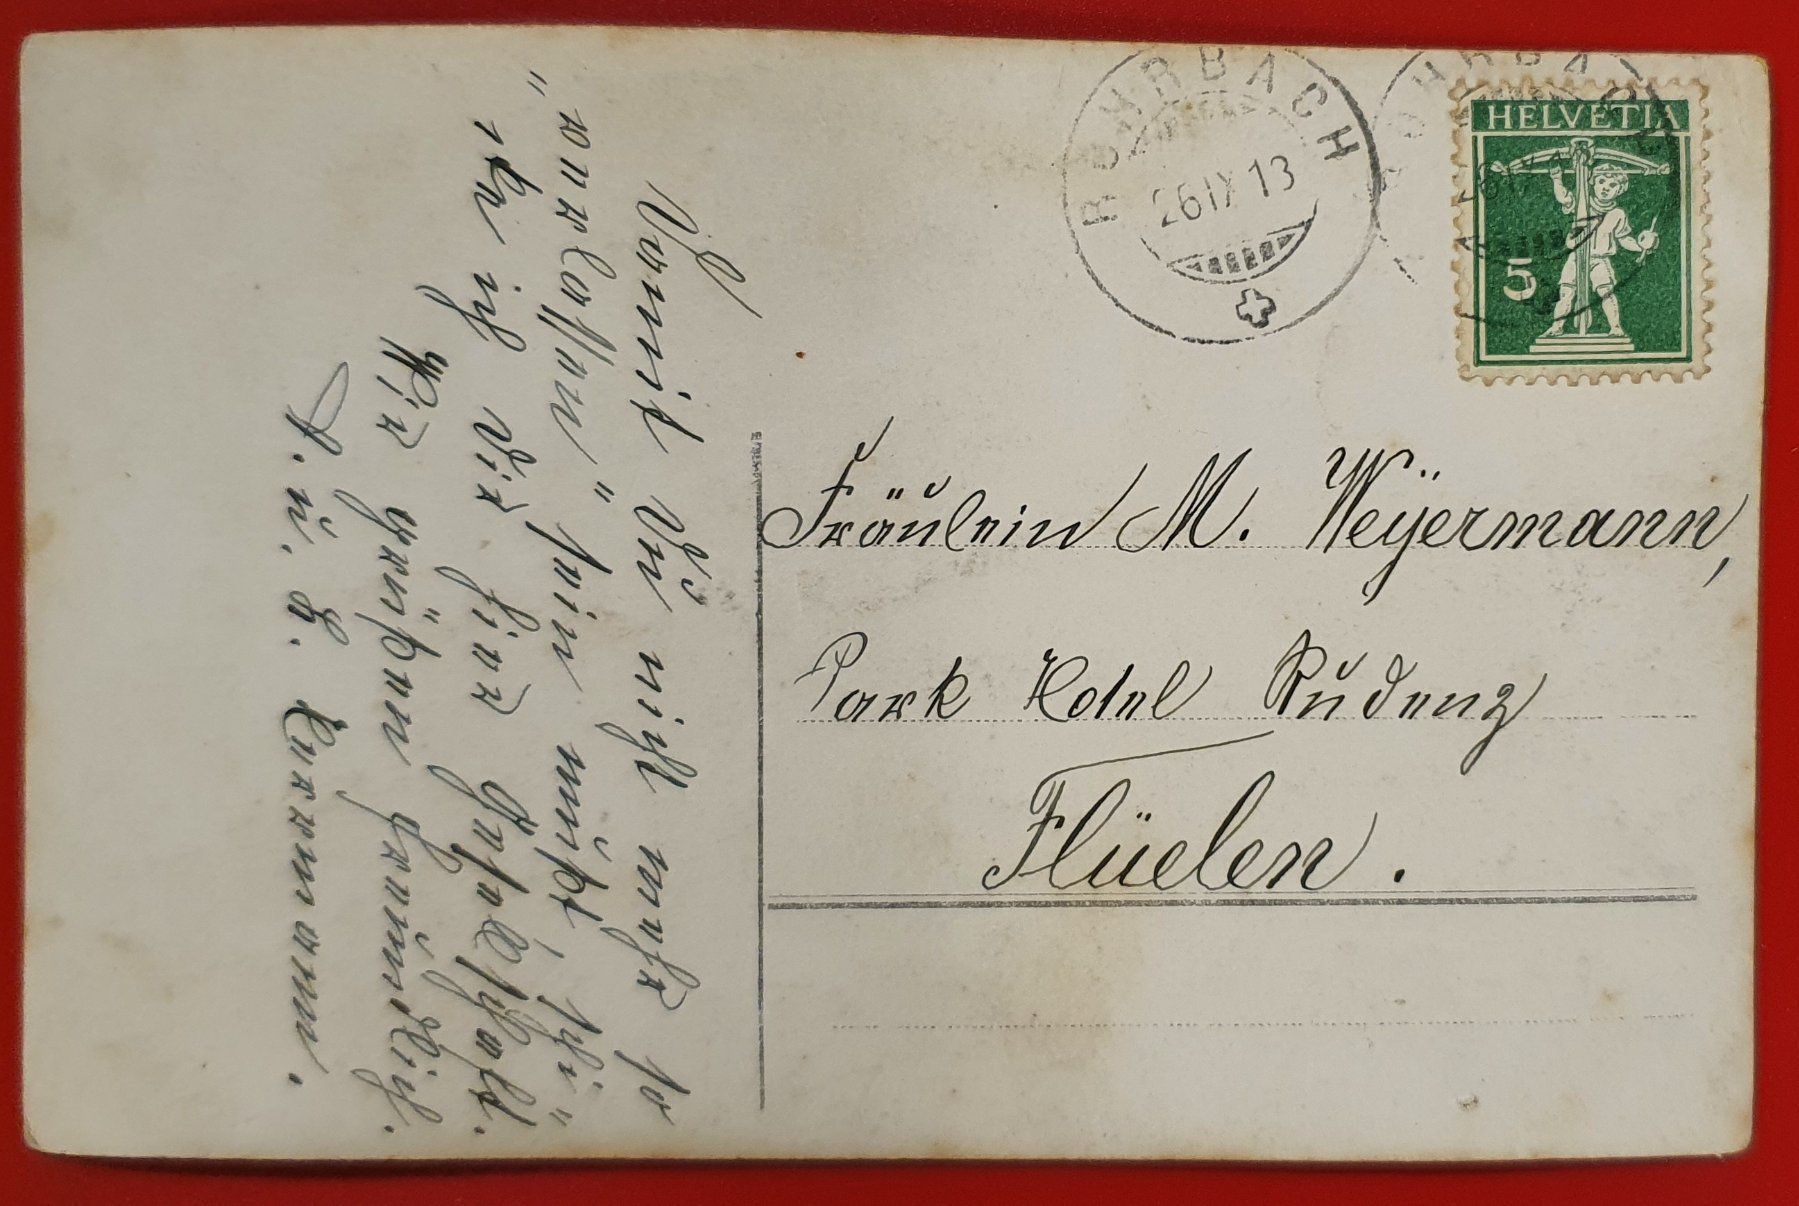 ROHRBACH
26 IX 13
ROHRBACH
HELVETIA
5
Fräulein M. Weÿermann,
Park Hotel Rudenz
Flüelen.
Damit Du nicht mehr so
„verlassen" sein mußt, schi"
ke ich Dir hier Gesellschaft.
Wir grüßen freundlich.
u.